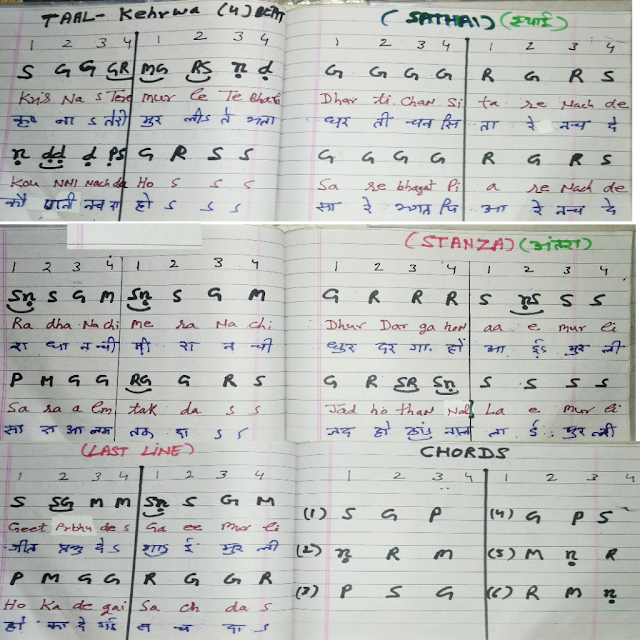 TAAL- Kehrwa (4) BEAT
1 2 3 4 1 2 3 4
S G G GR MG RS ṇ ḍ
Kris Na S Teri Mur le Te Bhata
कृष ना S तेरी मुर लीS ते
ṇ ḍḍ ḍ PS G R S S
Kou NNI Nach da Ho S S S
नच दा हो S S S
(SATHAI) (स्थाई)
1 2 3 4 1 2 3 4
G G G G R G R S
Dhar ti Chan Si ta re Nach de
धर ती चन सि ता रे नच दे
G G G G R G R S
Sa re bhagat Pi a re Nach de
सा रे भगत पि आ रे नच दे
1 2 3 4 1 2 3 4
Sṇ S G M Sṇ S G M
Ra dha Na chi me ra Na chi
रा धा न ची मी रा न ची
P M G G RG G R S
Sa ra a lm tak da S S
सा रा आ लम तक दा S S
(STANZA) (अंतरा)
1 2 3 4 1 2 3 4
G R R R S ṇS S S
Dhur Dar ga hon aa e mur li
धुर दर गा हों आ ईS मुर ली
G R SR Sṇ S S S S
Jad ho than Nal La e mur li
जद हो नाल ला ई मुर ली
(LAST LINE)
1 2 3 4 1 2 3 4
S SG M M Sṇ S G M
Geet Prbhu de S Ga ee Mur li
गीत प्रभु दे S गा ई मुर ली
P M G G R G G R
Ho Ka de gai Sa ch da S
हो का दे गई स च दा S
CHORDS
1 2 3 4
(1) S G P (4) G P S
(2) ṇ R M (5) M ṇ R
(3) P S G (6) R M ṇ